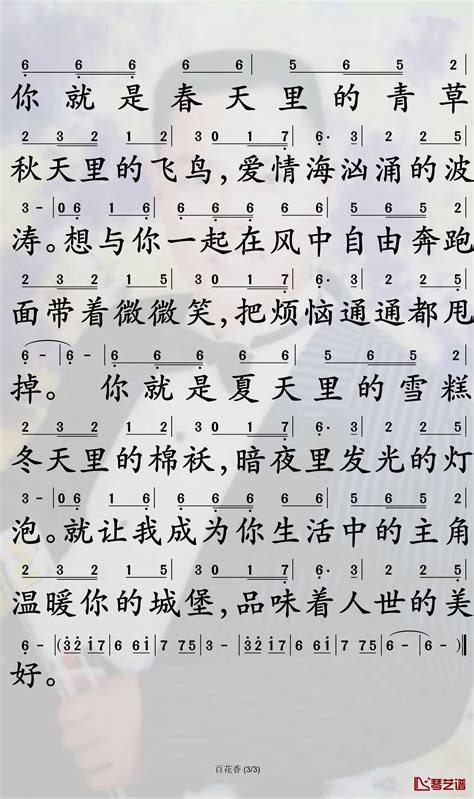 6 6 6 6 6 | 5 6 5 2 |
你就是春天里的青草
2 3 2 1 2 | 3 0 1 7 | 6· 3· | 2 2 2 5 |
秋天里的飞鸟,爱情海汹涌的波
3 - | 0 6 1 6 | 6 6 6 6 | 5 6 5 2 |
涛。想与你一起在风中自由奔跑
2 3 2 1 2 | 3 0 1 7 | 6· 3· | 2 2 1 5 |
面带着微微笑,把烦恼通通都甩
6 - | 6 - | 6 6 6 6 6 | 5 6 5 2 |
掉。 你就是夏天里的雪糕
2 3 2 1 2 | 3 0 1 7 | 6· 3· | 2 2 2 5 |
冬天里的棉袄,暗夜里发光的灯
3 - | 0 6 1 6 | 6 6 6 6 | 5 6 5 2 |
泡。就让我成为你生活中的主角
2 3 2 1 2 | 3 0 1 7 | 6· 3· | 2 2 1 5 |
温暖你的城堡,品味着人世的美
6 - | (3 2 1 7 | 6 6 1 | 7 7 5 | 3 - | 3 2 1 7 | 6 6 1 | 7 7 5 | 6 - | 6 - )‖
好。
百花香 (3/3)
琴艺谱